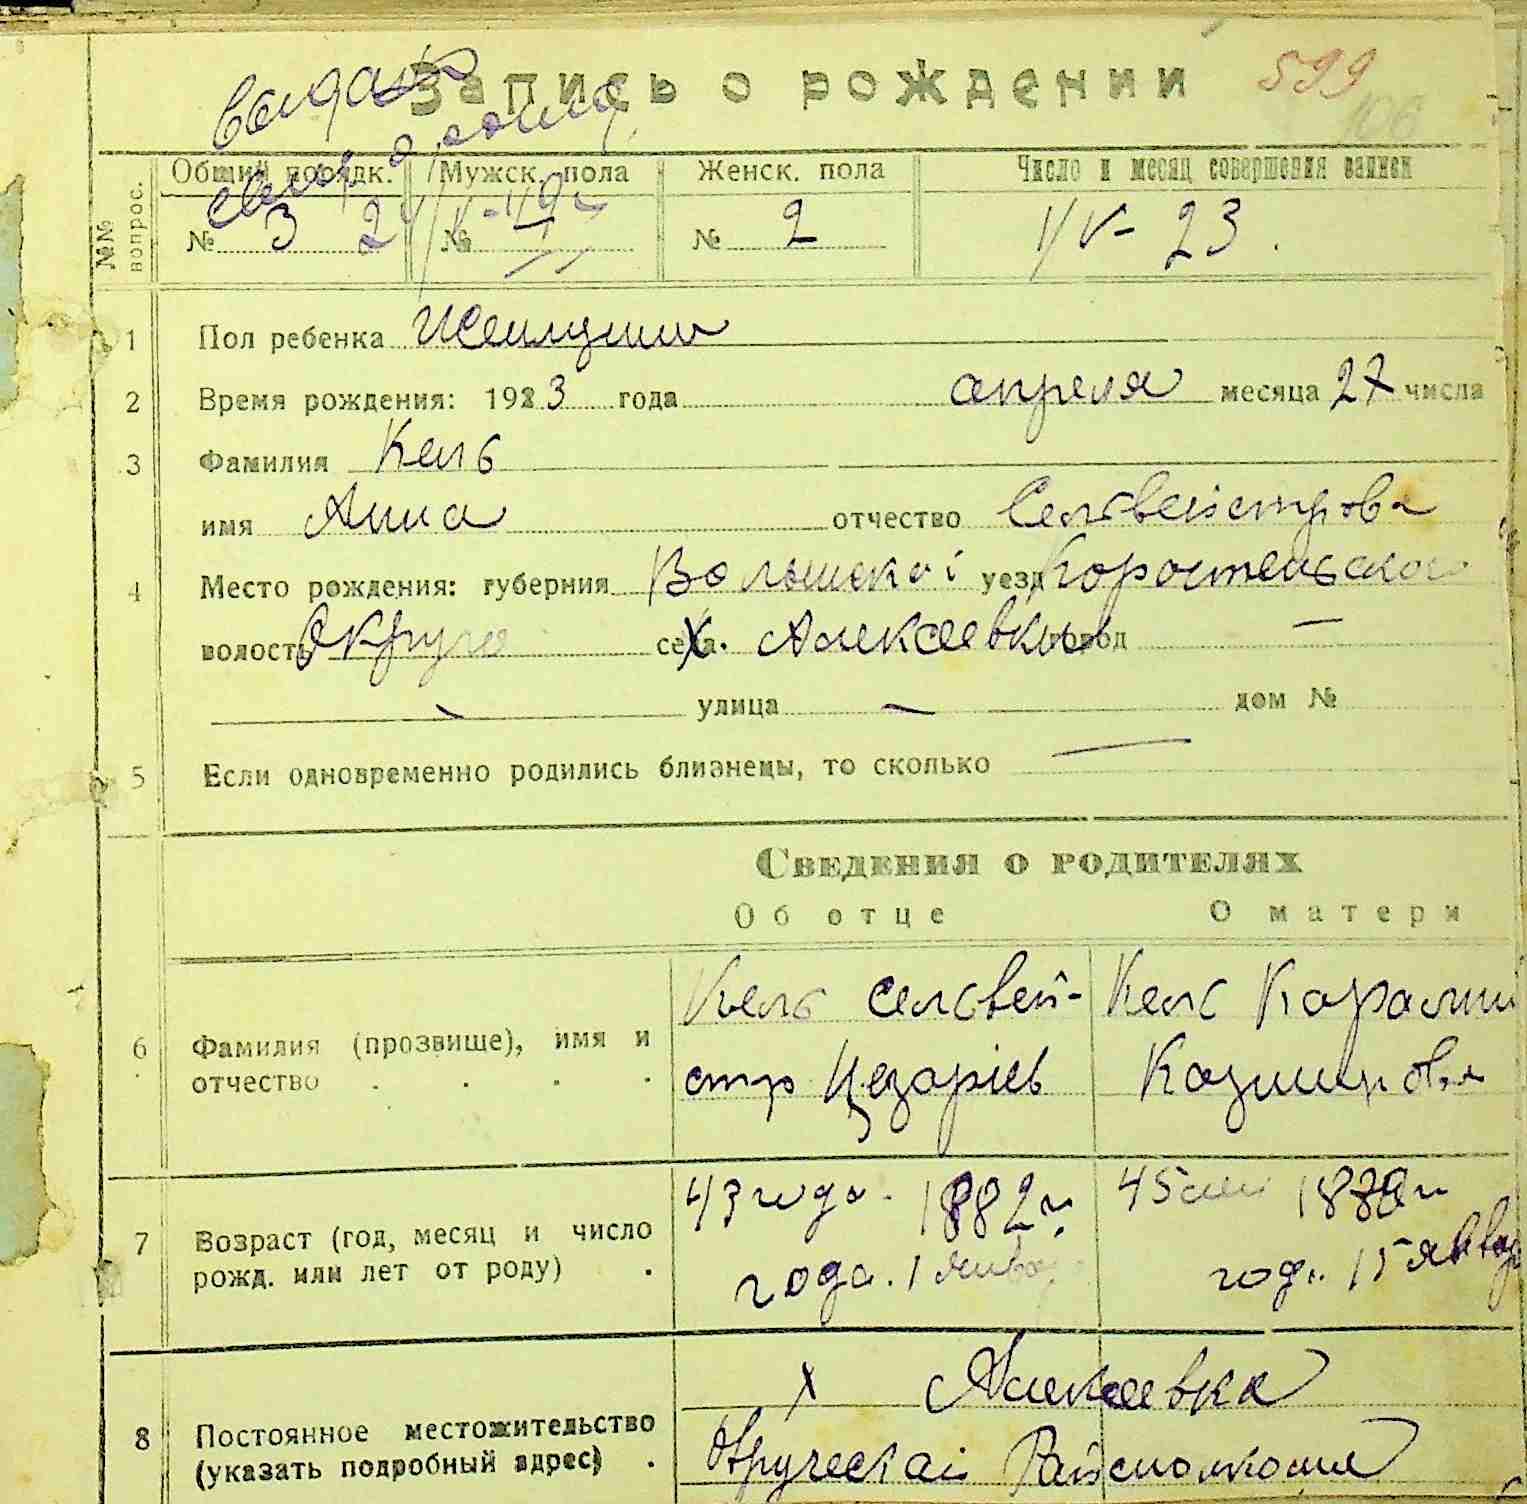 Запись о рождении 599
106
Общий порядк. Мужск. пола Женск. пола Число и месяц совершения записи
№№ вопрос.
№ 3 № № 2 IV - 23.
1 Пол ребенка Женщина
2 Время рождения: 1923 года апреля месяца 27 числа
3 Фамилия Кель
имя Анна отчество Сельвейстрова
4 Место рождения: губерния Волынской уезд Коростенского
волость Округа села х. Алексеевка город —
— улица — дом №
5 Если одновременно родились близнецы, то сколько —
Сведения о родителях
Об отце О матери
Кель Сельвей- Кель
6 Фамилия (прозвище), имя и
отчество стр Цезарiев Казимировна
43 года. 1882 г. 45 лет
7 Возраст (год, месяц и число
рожд. или лет от роду) года. 1 январ год. 15 январ
х Алексеевка
8 Постоянное местожительство
(указать подробный адрес)